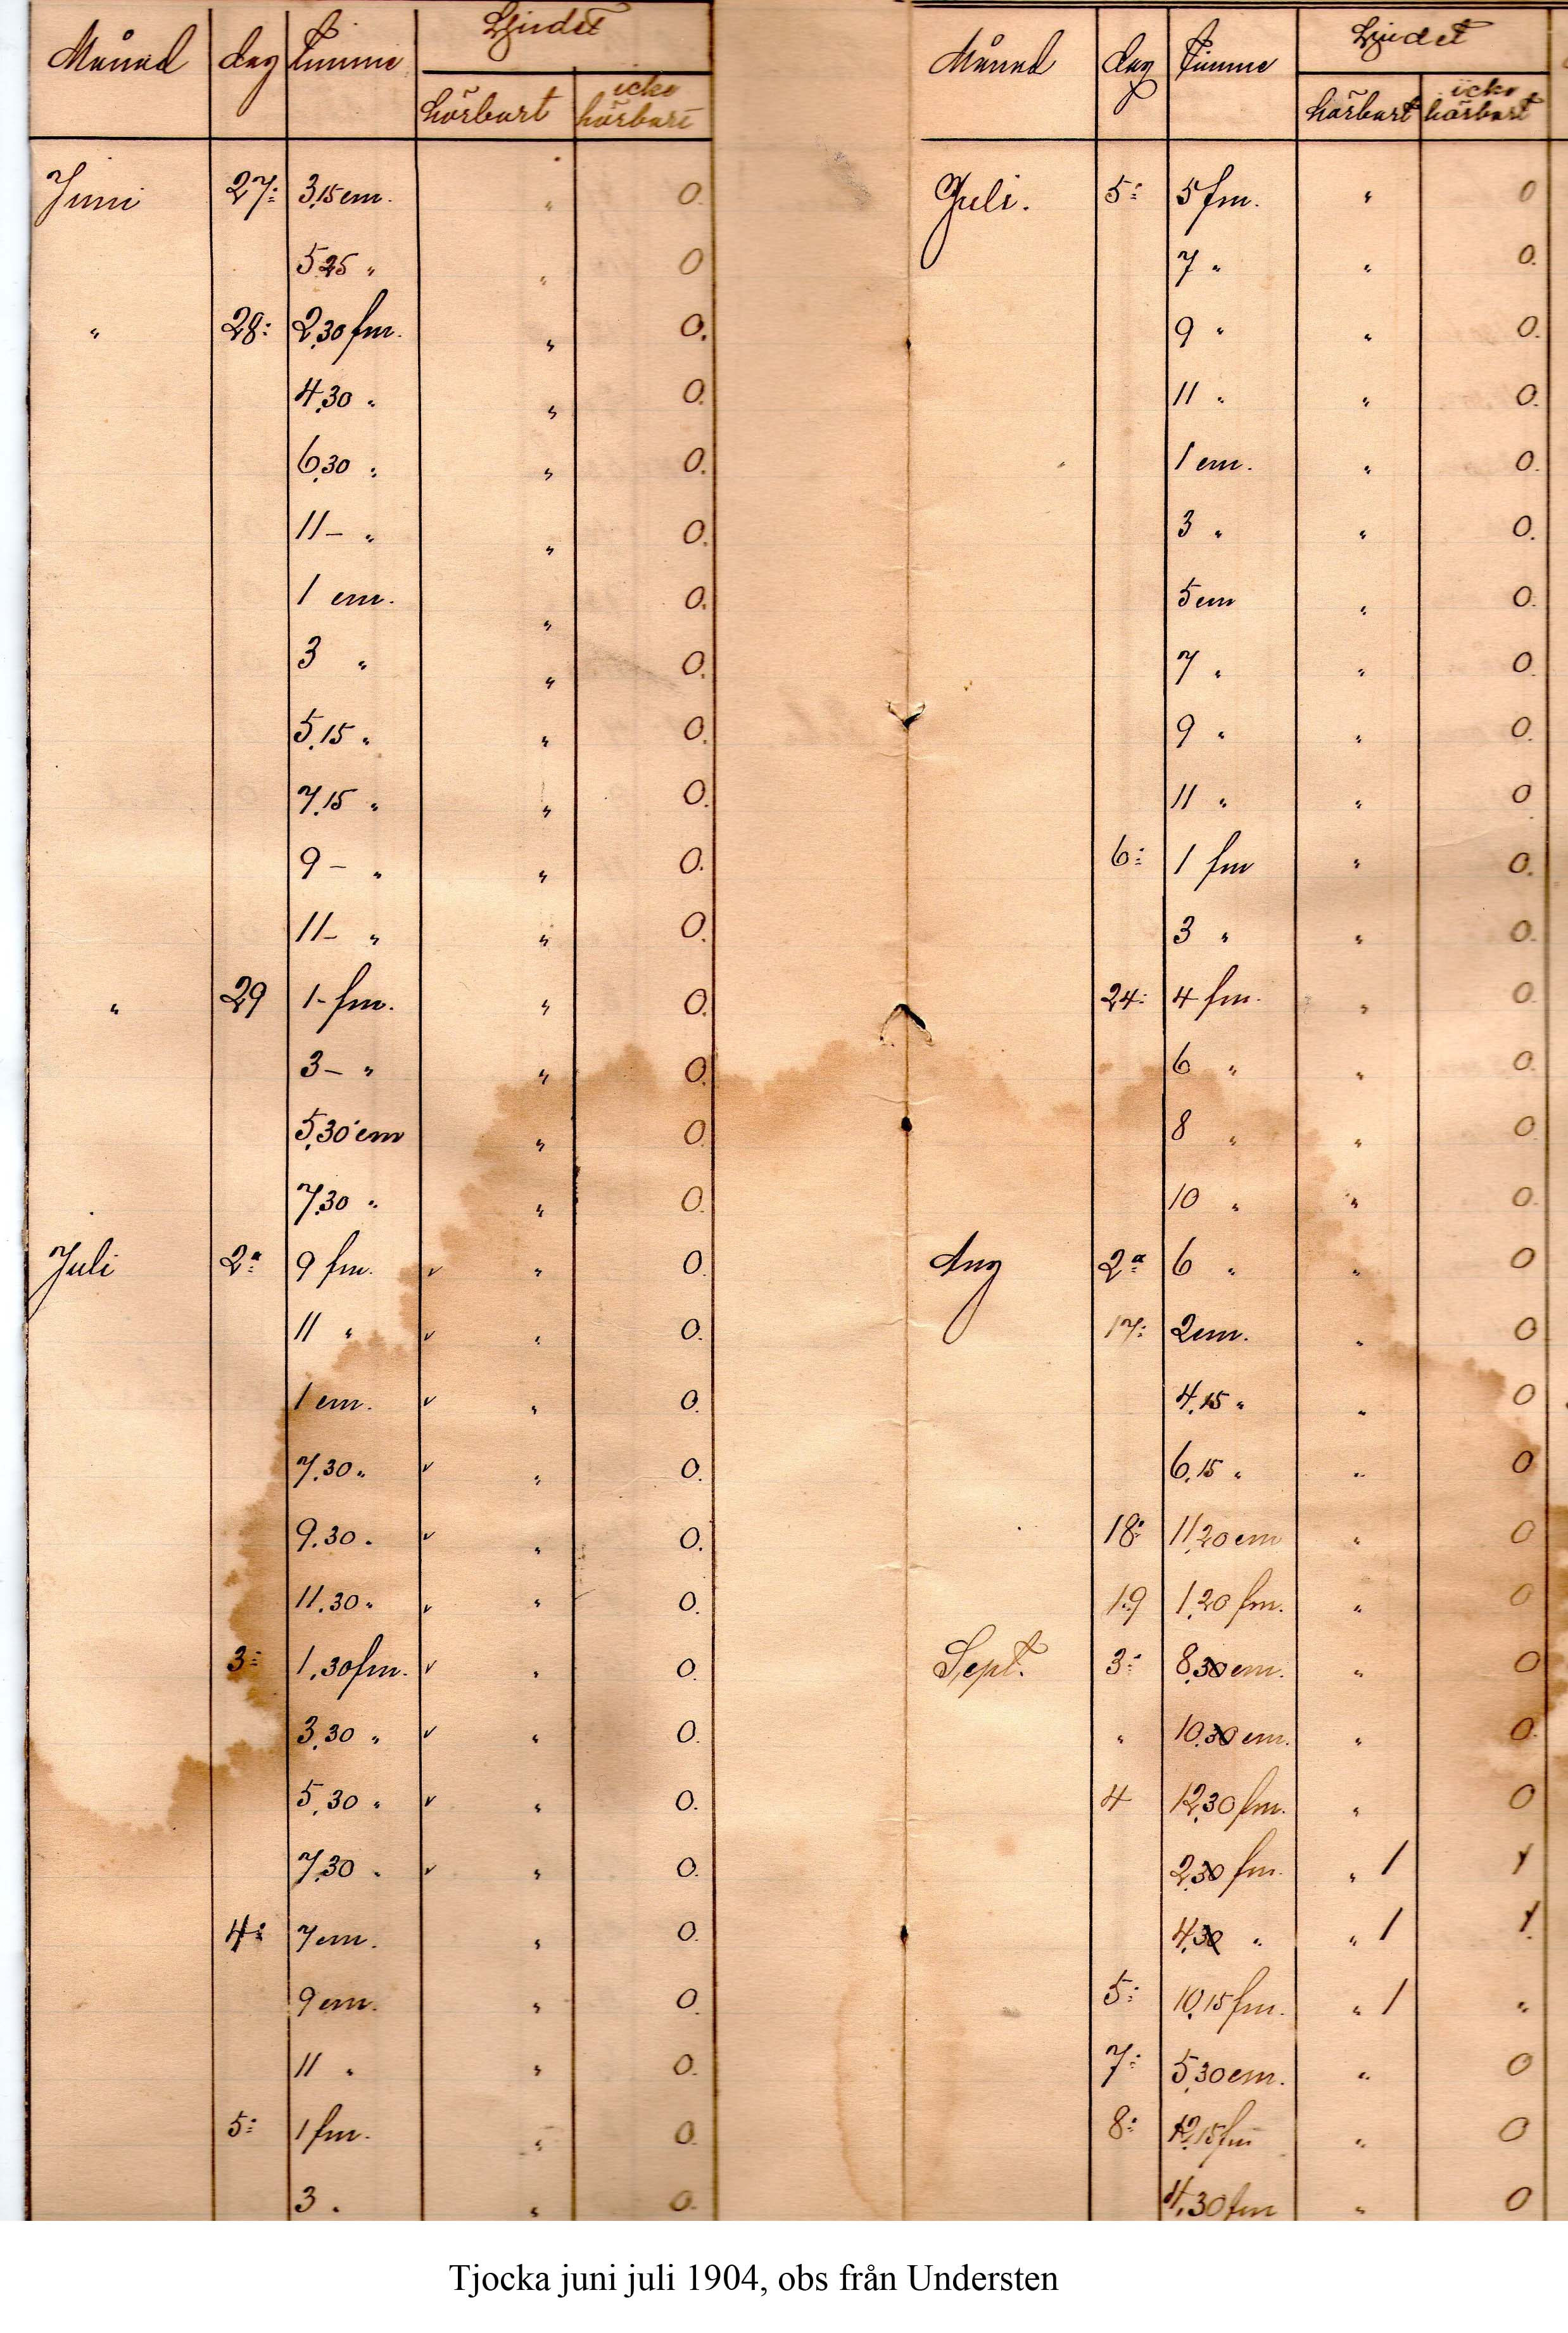 Månad dag Timme Ljudet
hörbart icke hörbart
Juni 27: 3,15 em. " 0.
5,25 " " 0
" 28: 2,30 fm. " 0.
4,30 " " 0.
6,30 " " 0.
11 – " " 0.
1 em. " 0.
3 " " 0.
5,15 " " 0.
7,15 " " 0.
9 – " " 0.
11 – " " 0.
" 29 1 – fm. " 0.
3 – " " 0.
5,30 em " 0.
7,30 " " 0.
Juli 2a 9 fm. v " 0.
11 " v " 0.
1 em. v " 0.
7,30 " v " 0.
9.30 " v " 0.
11.30 " v " 0.
3: 1,30 fm. v " 0.
3,30 " v " 0.
5,30 " v " 0.
7,30 " v " 0.
4: 7 em. " 0.
9 em. " 0.
11 " " 0.
5: 1 fm. " 0.
3 " " 0.
Månad dag Timme Ljudet
hörbart icke hörbart
Juli. 5: 5 fm. " 0
7 " " 0.
9 " " 0.
11 " " 0.
1 em. " 0.
3 " " 0.
5 em " 0.
7 " " 0.
9 " " 0.
11 " " 0.
6: 1 fm " 0.
3 " " 0.
24: 4 fm. " 0.
6 " " 0.
8 " " 0.
10 " " 0.
Aug 2a 6 " " 0
17: 2 em. " 0
4,15 " " 0
6,15 " " 0
18: 11,20 em " 0
19 1,20 fm. " 0
Sept. 3: 8,30 em. " 0
" 10,30 em. " 0.
4 12,30 fm. " 0
2,30 fm. " 1 1
4,30 " " 1 1.
5: 10,15 fm. " 1 "
7: 5,30 em. " 0
8: 12,15 fm " 0
4,30 fm " 0
Tjocka juni juli 1904, obs från Understen